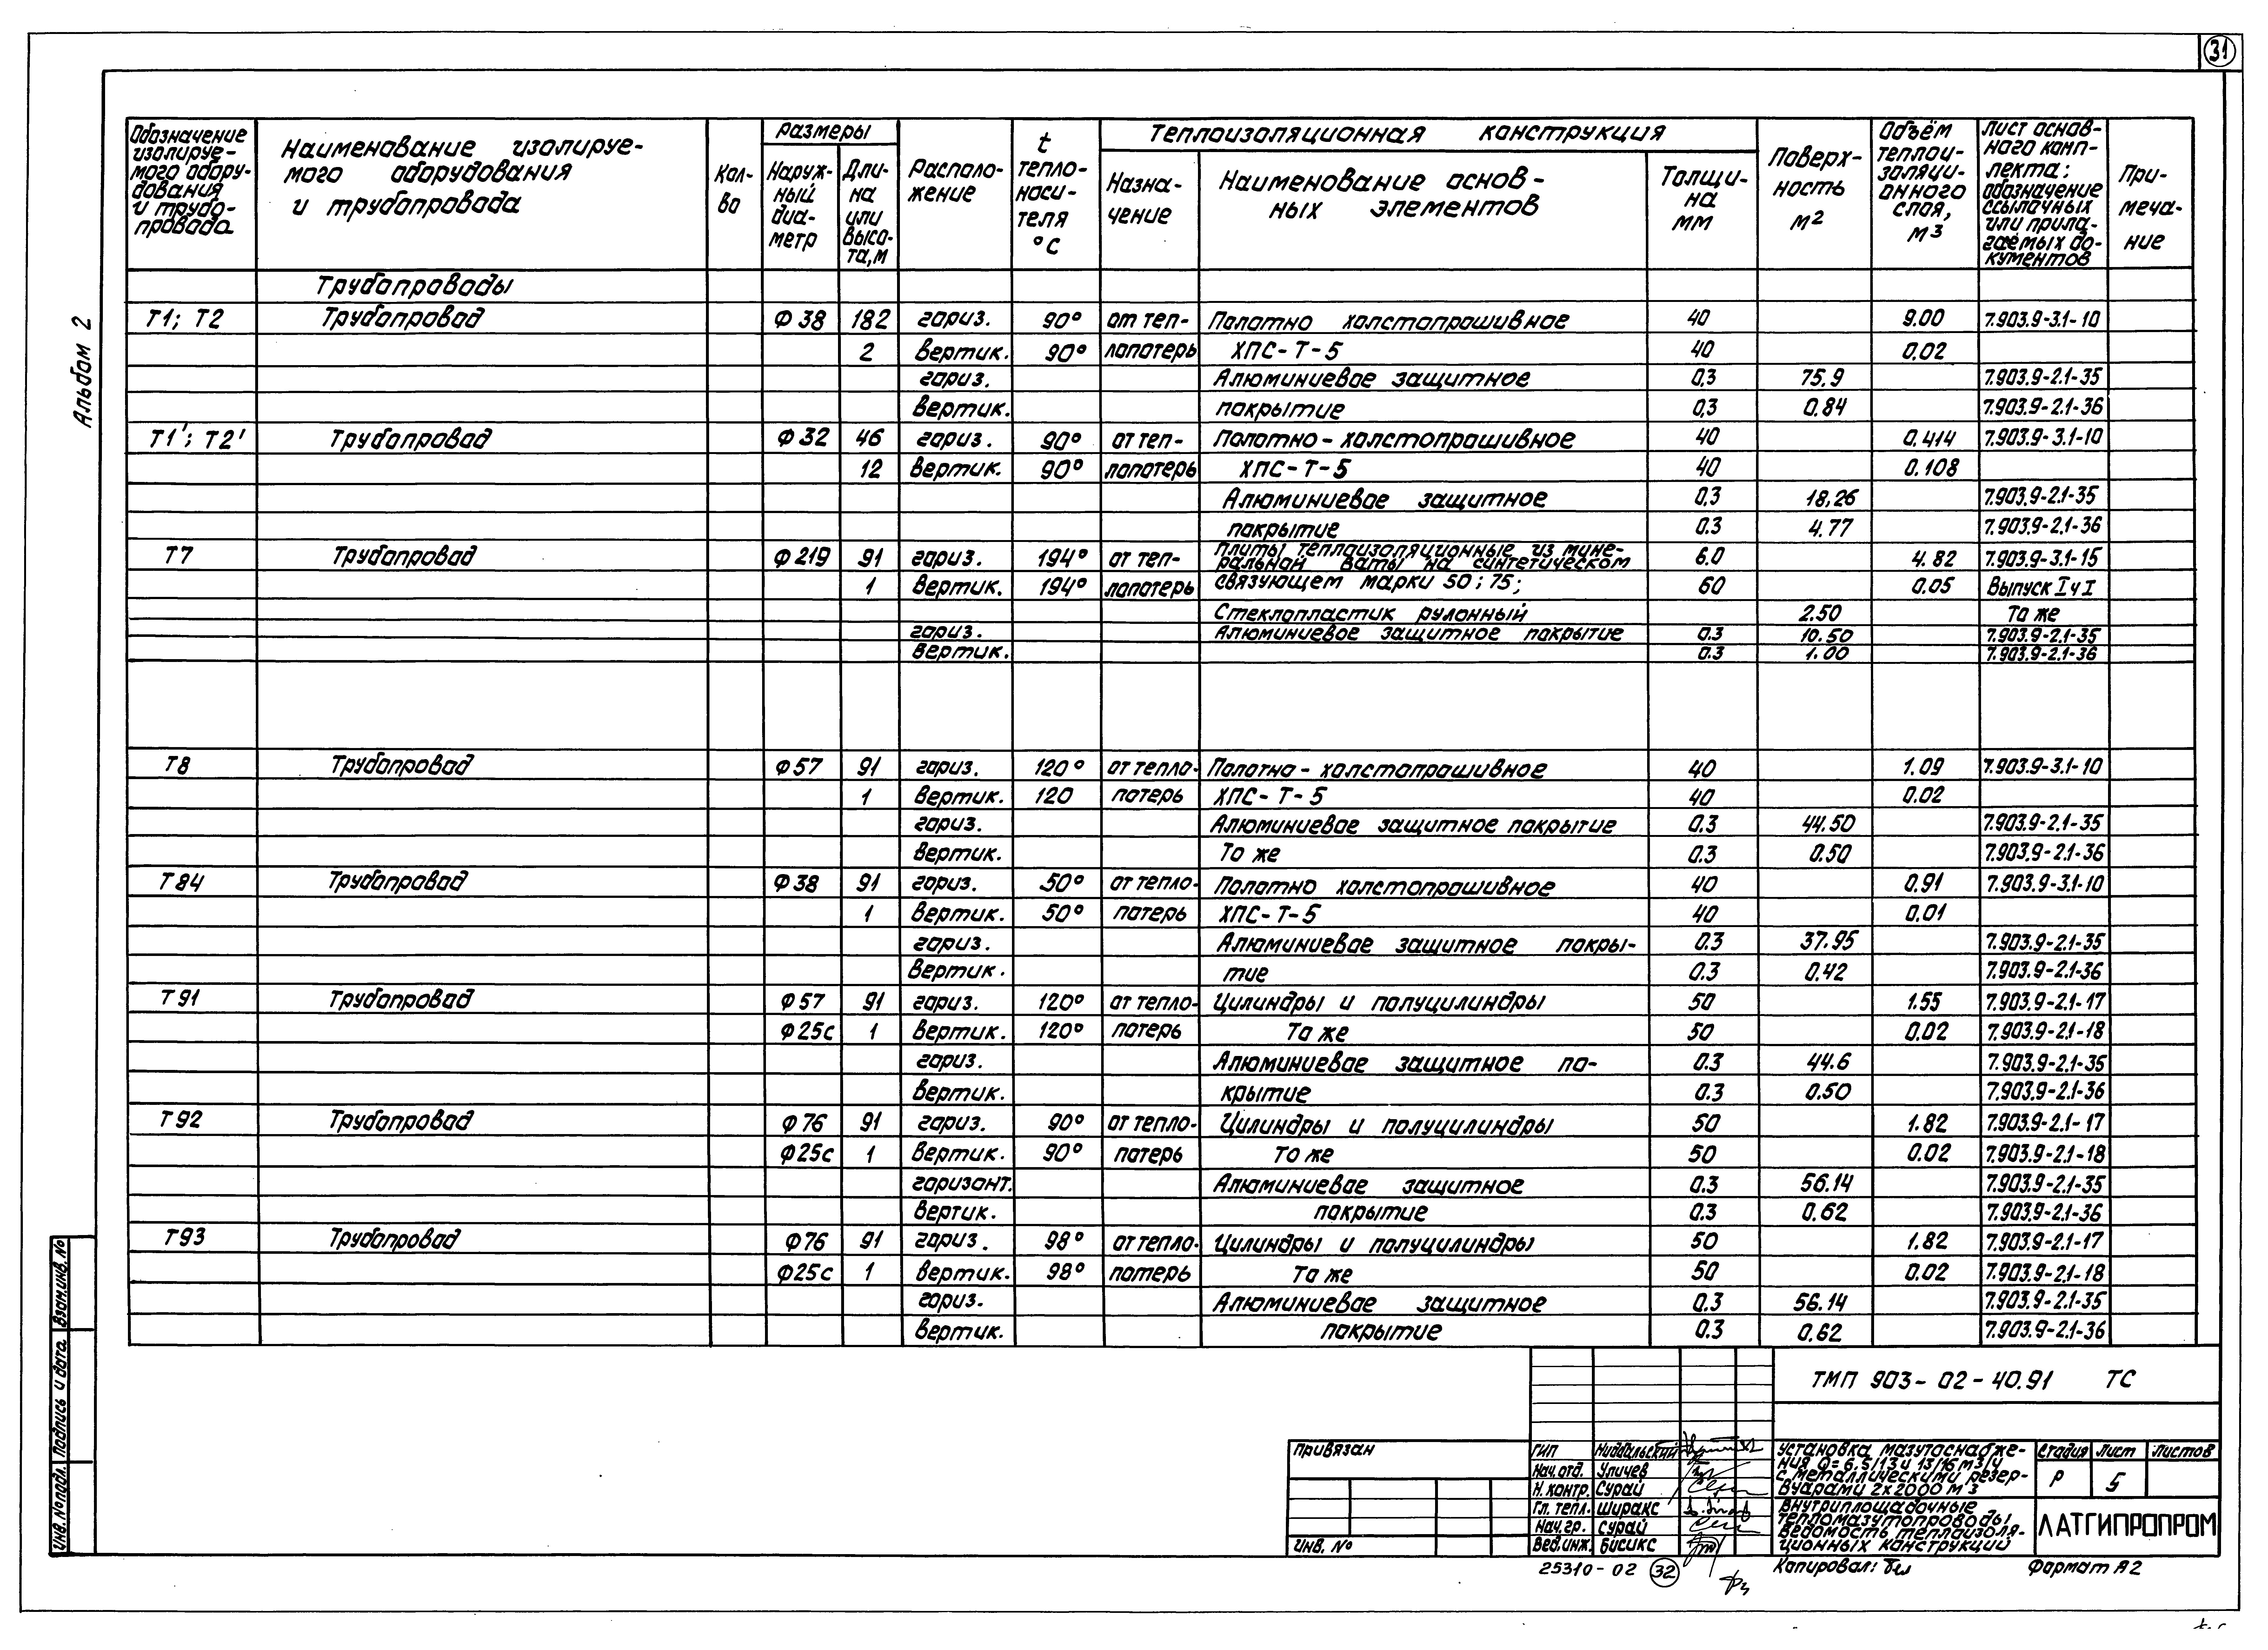 31
Альбом 2
Обозначение изолируемого оборудования и трубопровода
Наименование изолируемого оборудования и трубопровода
Кол-во
Размеры
Наружный диаметр
Длина или высота, м
Расположение
t теплоносителя °С
Теплоизоляционная конструкция
Назначение
Наименование основных элементов
Толщина мм
Поверхность м2
Объём теплоизоляционного слоя, м3
Лист основного комплекта; обозначение ссылочных или прилагаемых документов
Примечание
Трубопроводы
Т1; Т2 Трубопровод Ф38 182 гориз. 90° от теп- Полотно холстопрошивное 40 9.00 7.903.9-3.1-10
2 вертик. 90° лопотерь ХПС-Т-5 40 0.02
гориз. Алюминиевое защитное 0.3 75.9 7.903.9-2.1-35
вертик. покрытие 0,3 0.84 7.903.9-2.1-36
Т1'; Т2' Трубопровод Ф32 46 гориз. 90° от теп- Полотно-холстопрошивное 40 0.414 7.903.9-3.1-10
12 вертик. 90° лопотерь ХПС-Т-5 40 0.108
Алюминиевое защитное 0.3 18,26 7.903.9-2.1-35
покрытие 0.3 4.77 7.903.9-2.1-36
Т7 Трубопровод Ф219 91 гориз. 194° от теп- Плиты теплоизоляционные из мине- 6.0 4.82 7.903.9-3.1-15
ральной ваты на синтетическом
1 вертик. 194° лопотерь связующем марки 50; 75; 60 0.05 Выпуск I ч I
Стеклопластик рулонный 2.50 То же
гориз. Алюминиевое защитное покрытие 0.3 10.50 7.903.9-2.1-35
вертик. 0.3 1.00 7.903.9-2.1-36
Т8 Трубопровод Ф57 91 гориз. 120° от тепло- Полотно-холстопрошивное 40 1.09 7.903.9-3.1-10
1 вертик. 120 потерь ХПС-Т-5 40 0.02
гориз. Алюминиевое защитное покрытие 0.3 44.50 7.903.9-2.1-35
вертик. То же 0.3 0.50 7.903.9-2.1-36
Т84 Трубопровод Ф38 91 гориз. 50° от тепло- Полотно холстопрошивное 40 0.91 7.903.9-3.1-10
1 вертик. 50° потерь ХПС-Т-5 40 0.01
гориз. Алюминиевое защитное покры- 0.3 37.95 7.903.9-2.1-35
вертик. тие 0.3 0.42 7.903.9-2.1-36
Т91 Трубопровод Ф57 91 гориз. 120° от тепло- Цилиндры и полуцилиндры 50 1.55 7.903.9-2.1-17
Ф25с 1 вертик. 120° потерь То же 50 0.02 7.903.9-2.1-18
гориз. Алюминиевое защитное по- 0.3 44.6 7.903.9-2.1-35
вертик. крытие 0.3 0.50 7.903.9-2.1-36
Т92 Трубопровод Ф76 91 гориз. 90° от тепло- Цилиндры и полуцилиндры 50 1.82 7.903.9-2.1-17
Ф25с 1 вертик. 90° потерь То же 50 0.02 7.903.9-2.1-18
горизонт. Алюминиевое защитное 0.3 56.14 7.903.9-2.1-35
вертик. покрытие 0.3 0.62 7.903.9-2.1-36
Т93 Трубопровод Ф76 91 гориз. 98° от тепло- Цилиндры и полуцилиндры 50 1.82 7.903.9-2.1-17
Ф25с 1 вертик. 98° потерь То же 50 0.02 7.903.9-2.1-18
гориз. Алюминиевое защитное 0.3 56.14 7.903.9-2.1-35
вертик. покрытие 0.3 0.62 7.903.9-2.1-36
Взам.инв.№
Подпись и дата
Инв.№подл.
ТМП 903-02-40.91 ТС
Привязан
Инв. №
ГИП
Нач.отд. Уличев
Н.контр. Сурай
Гл. тепл. Ширакс
Нач.гр. Сурай
Вед.инж. Бисикс
Установка мазутоснабже-
ния Q=6.5/13 и 13/16 м3/ч
с металлическими резер-
вуарами 2х2000 м3
Стадия Лист Листов
Р 5
Внутриплощадочные
тепломазутопроводы
Ведомость теплоизоля-
ционных конструкций
ЛАТГИПРОПРОМ
25310-02 32
Копировал:
Формат А2